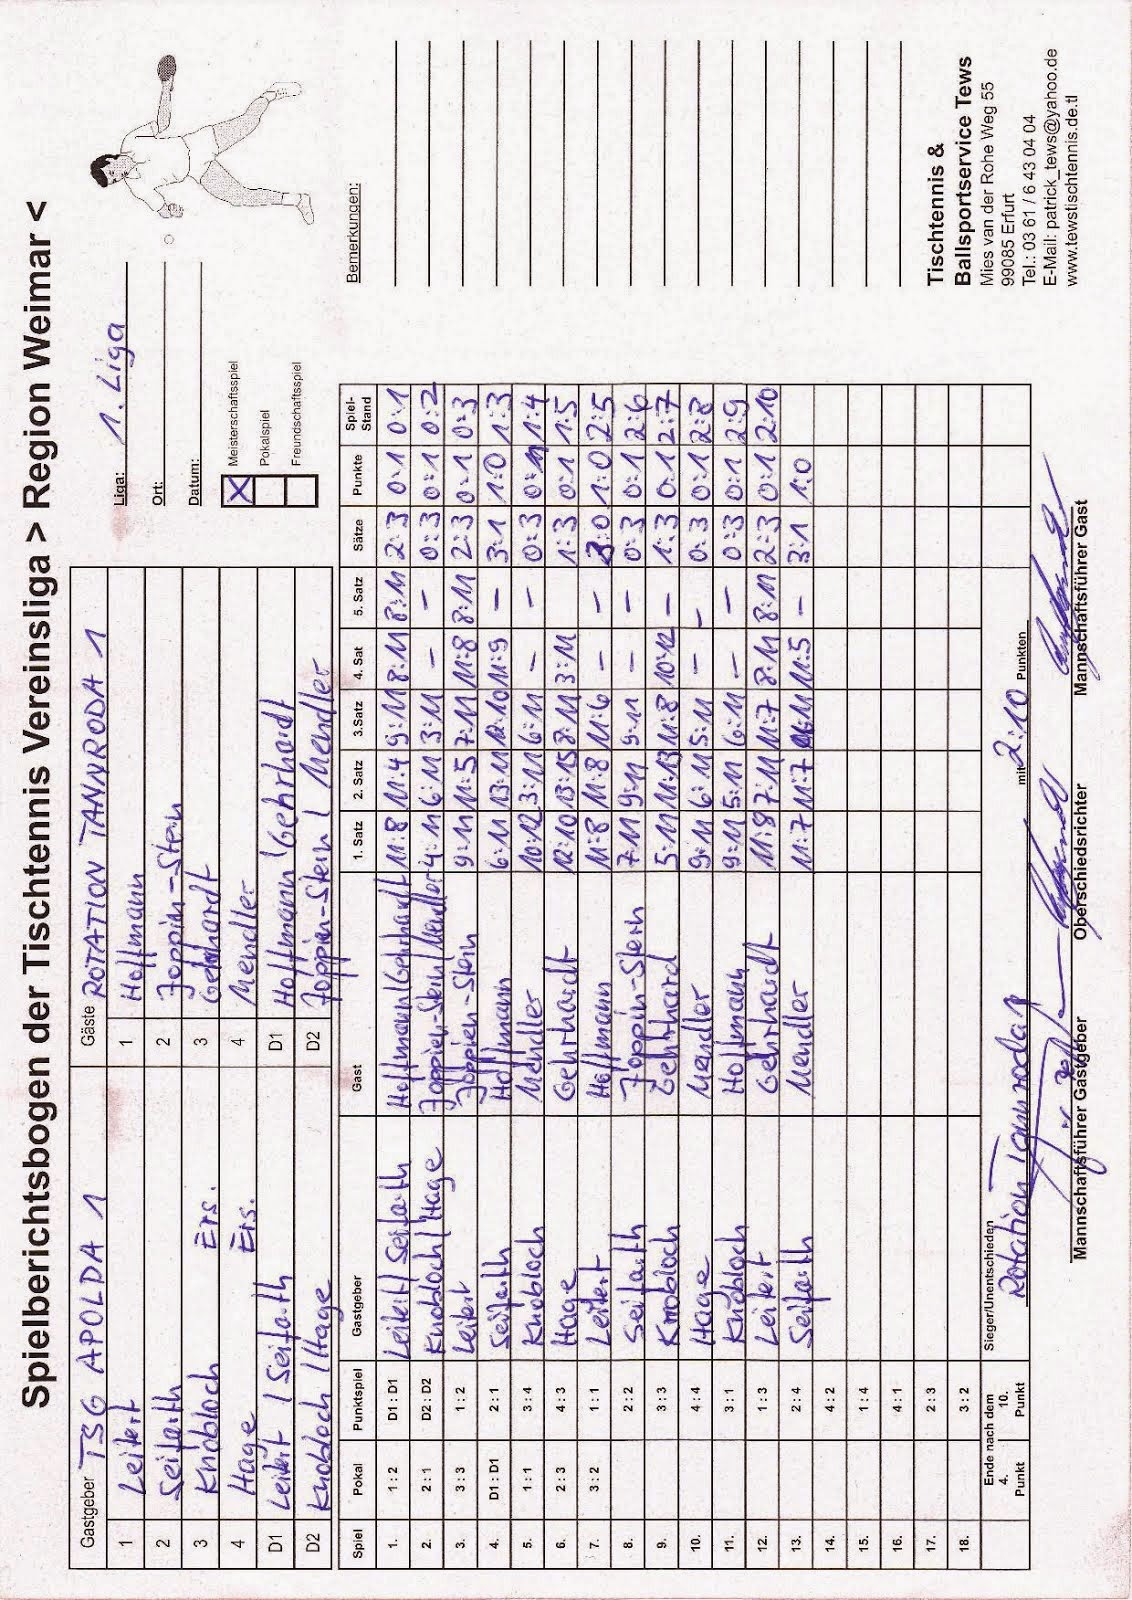 Spielberichtsbogen der Tischtennis Vereinsliga > Region Weimar <
Gastgeber TSG APOLDA 1
1 Leitert
2 Seifarth
3 Knobloch Ers.
4 Hage Ers.
D1 Leitert / Seifarth
D2 Knobloch / Hage
Gäste ROTATION TANNRODA 1
1 Hoffmann
2 Joppien-Stern
3 Gehrhardt
4 Mendler
D1 Hoffmann / Gehrhardt
D2 Joppien-Stern / Mendler
Liga: 1. Liga
Ort:
Datum:
X Meisterschaftsspiel
Pokalspiel
Freundschaftsspiel
Spiel Pokal Punktspiel Gastgeber Gast 1. Satz 2. Satz 3.Satz 4. Sat 5. Satz Sätze Punkte Spiel-Stand
1. 1 : 2 D1 : D1 Leitert / Seifarth Hoffmann/Gehrhardt 11:8 11:4 9:11 8:11 8:11 2:3 0:1 0:1
2. 2 : 1 D2 : D2 Knobloch / Hage Joppien-Stern/Mendler 4:11 6:11 3:11 – – 0:3 0:1 0:2
3. 3 : 3 1 : 2 Leitert Joppien-Stern 9:11 11:5 7:11 11:8 8:11 2:3 0:1 0:3
4. D1 : D1 2 : 1 Seifarth Hoffmann 6:11 13:11 12:10 11:9 – 3:1 1:0 1:3
5. 1 : 1 3 : 4 Knobloch Mendler 10:12 3:11 6:11 – – 0:3 0:1 1:4
6. 2 : 3 4 : 3 Hage Gehrhardt 12:10 13:15 8:11 3:11 1:3 0:1 1:5
7. 3 : 2 1 : 1 Leitert Hoffmann 11:8 11:8 11:6 – – 3:0 1:0 2:5
8. 2 : 2 Seifarth Joppien-Stern 7:11 9:11 9:11 – – 0:3 0:1 2:6
9. 3 : 3 Knobloch Gehrhard 5:11 11:13 11:8 10:12 1:3 0:1 2:7
10. 4 : 4 Hage Mendler 9:11 6:11 5:11 – 0:3 0:1 2:8
11. 3 : 1 Knobloch Hoffmann 9:11 5:11 6:11 – – 0:3 0:1 2:9
12. 1 : 3 Leitert Gehrhardt 11:8 7:11 11:7 8:11 8:11 2:3 0:1 2:10
13. 2 : 4 Seifarth Mendler 11:7 11:7 11:5 – 3:1 1:0
14. 4 : 2
15. 1 : 4
16. 4 : 1
17. 2 : 3
18. 3 : 2
Ende nach dem
4. 10.
Punkt Punkt
Sieger/Unentschieden
Rotation Tannroda 1 mit 2:10 Punkten
Mannschaftsführer Gastgeber
Oberschiedsrichter
Mannschaftsführer Gast
Bemerkungen:
Tischtennis &
Ballsportservice Tews
Mies van der Rohe Weg 55
99085 Erfurt
Tel.: 03 61 / 6 43 04 04
E-Mail: patrick_tews@yahoo.de
www.tewstischtennis.de.tl